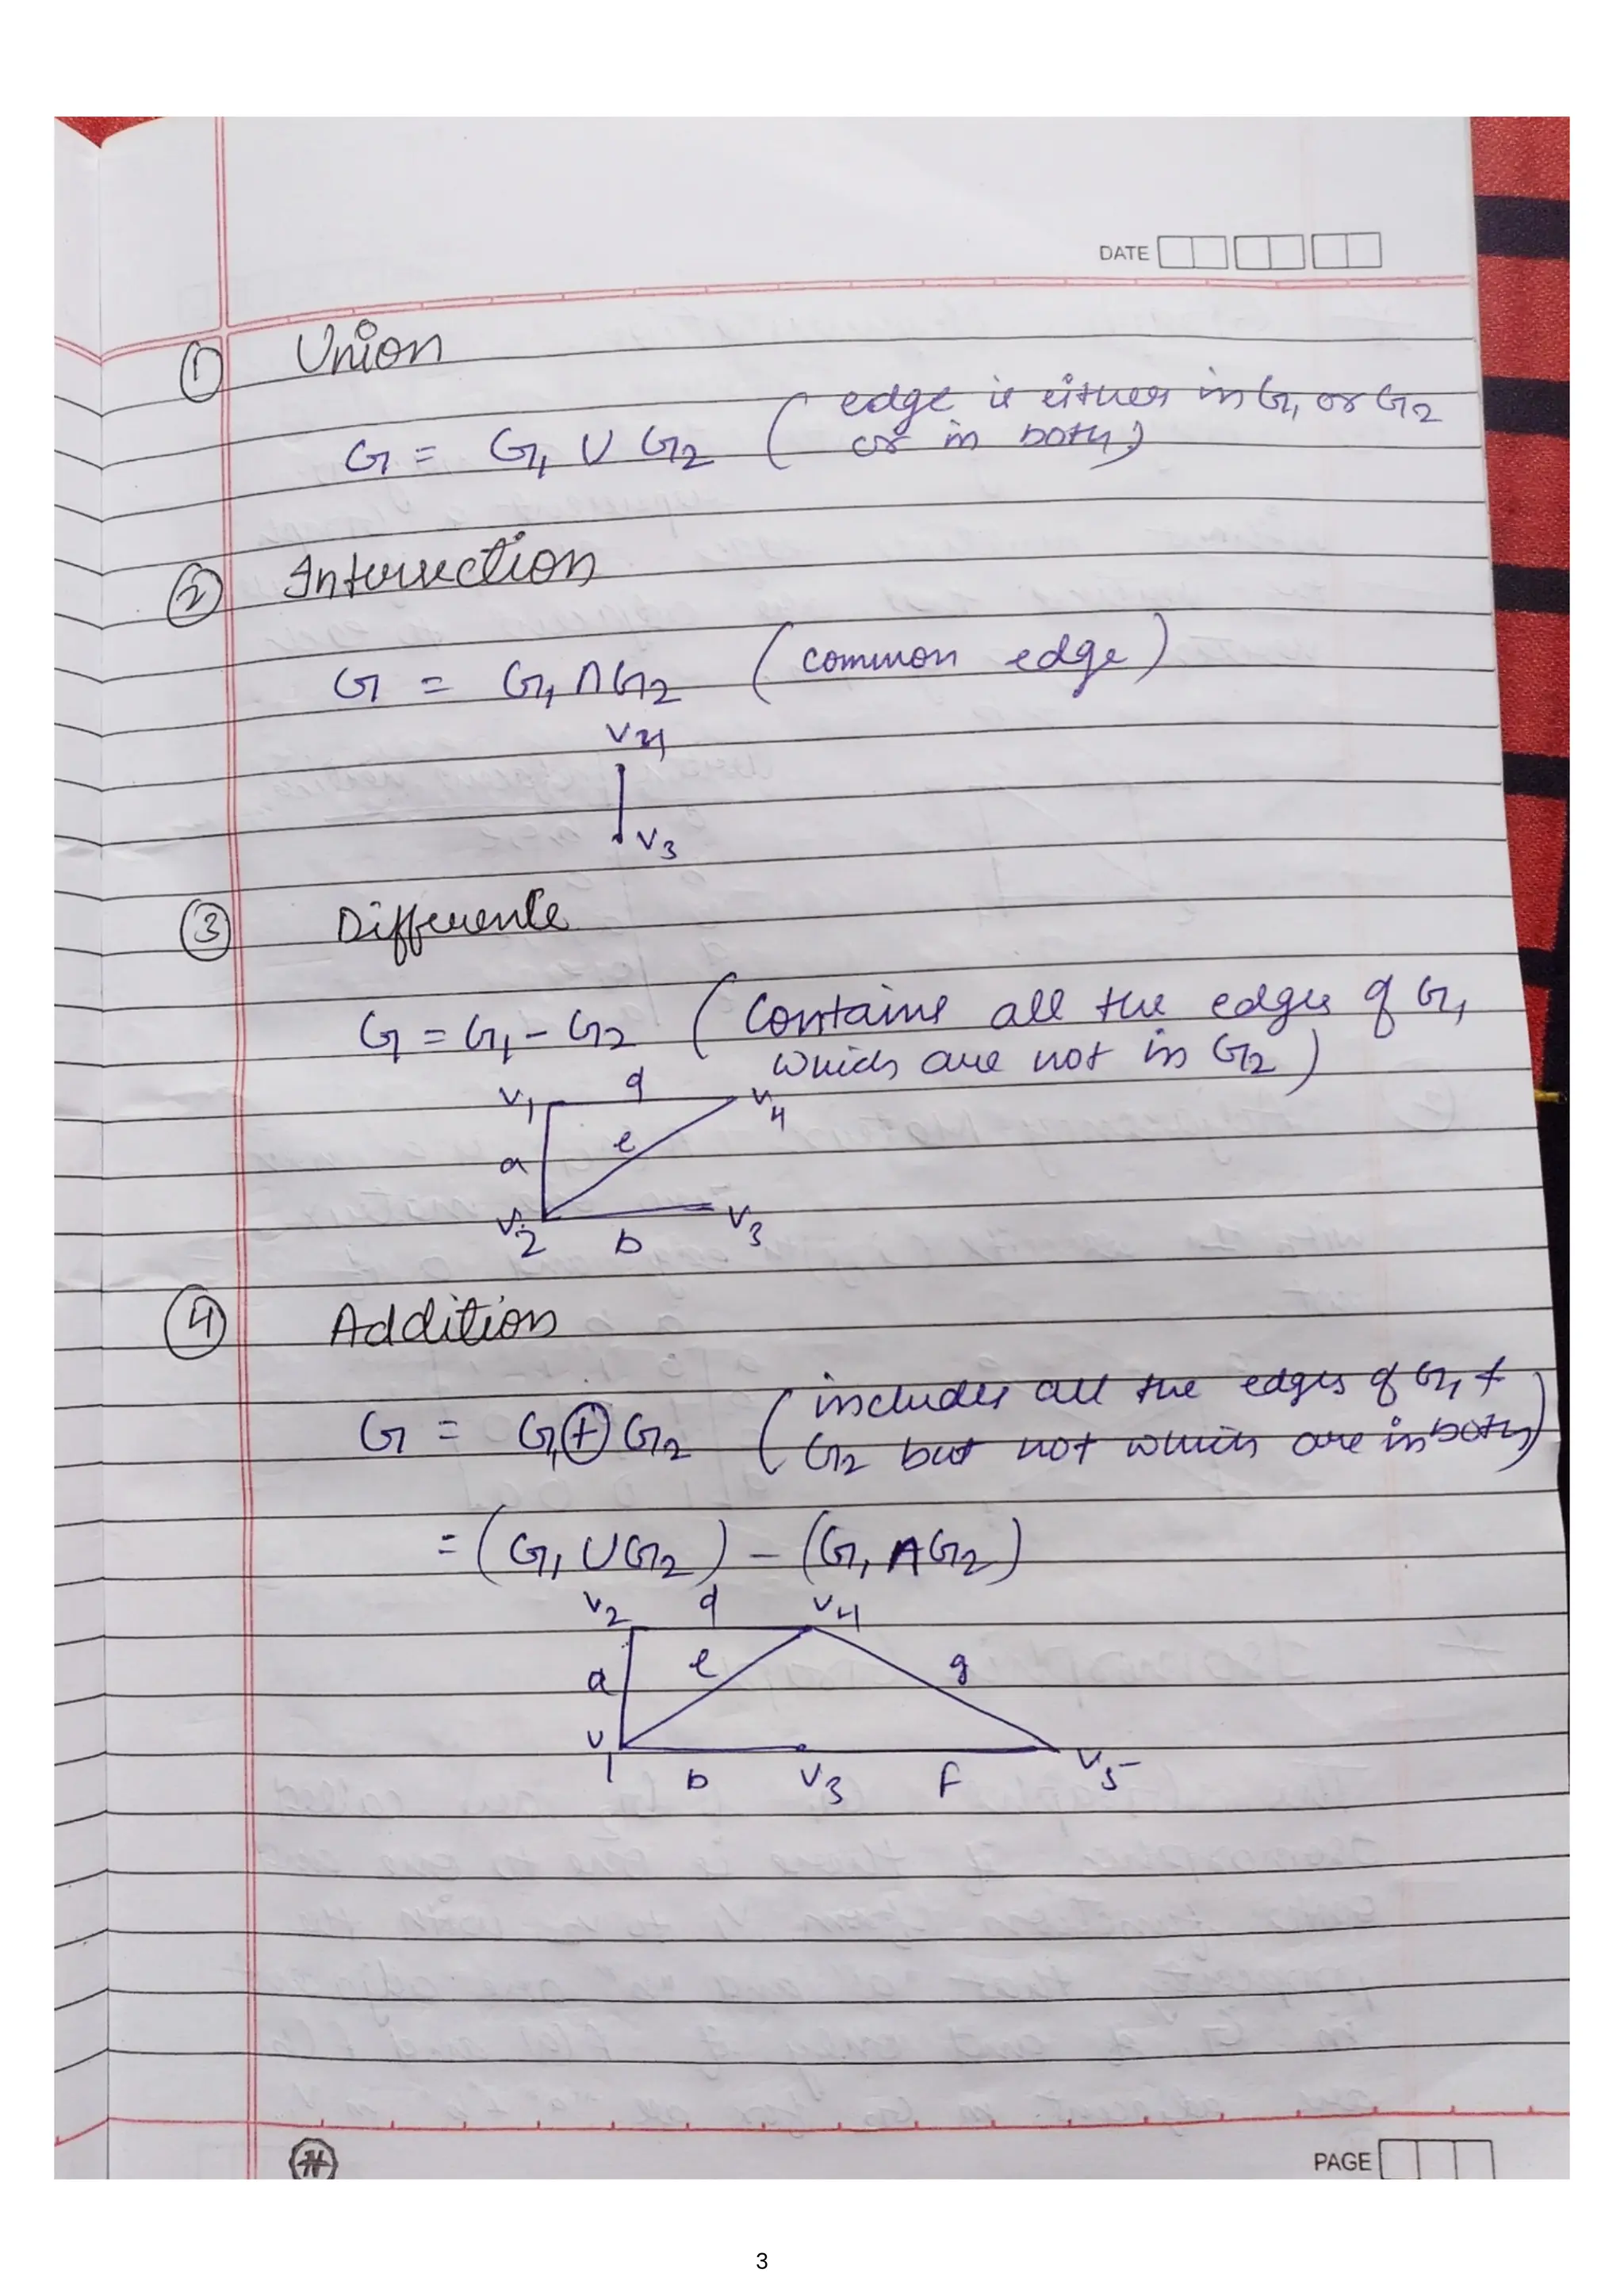 DATE
① Union
G = G₁ ∪ G₂ ( edge is either in G₁ or G₂
or in both)
② Intersection
G = G₁ ∩ G₂ (common edge)
V4
V3
③ Difference
G = G₁ - G₂ (Contains all the edges of G₁
which are not in G₂)
V1 d V4
a e
V2 b V3
④ Addition
G = G₁ ⊕ G₂ (includes all the edges of G₁ &
G₂ but not which are in both)
= (G₁ ∪ G₂) - (G₁ ∩ G₂)
V2 d V4
a e g
V1 b V3 f V5
PAGE
3